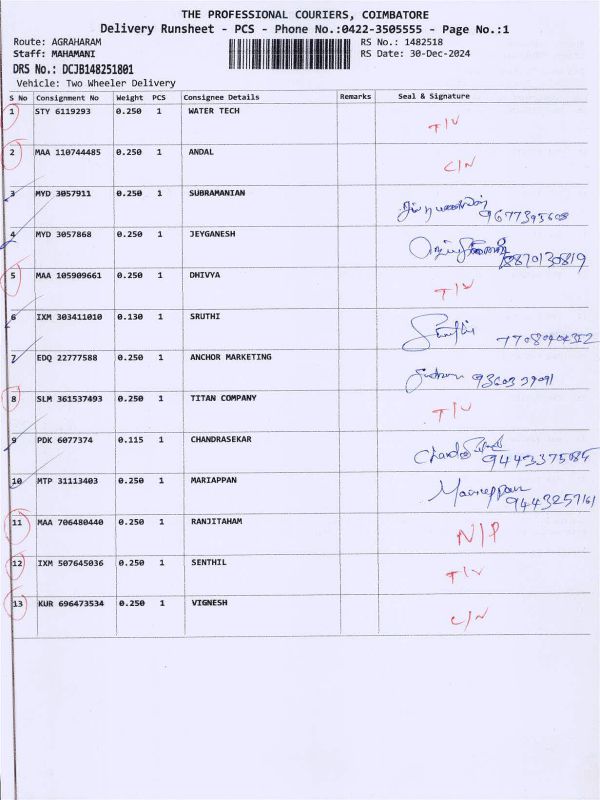 THE PROFESSIONAL COURIERS, COIMBATORE
Delivery Runsheet - PCS - Phone No.:0422-3505555 - Page No.:1
Route: AGRAHARAM RS No.: 1482518
Staff: MAHAMANI RS Date: 30-Dec-2024
DRS No.: DCJB148251801
Vehicle: Two Wheeler Delivery
S No Consignment No Weight PCS Consignee Details Remarks Seal & Signature
1 STY 6119293 0.250 1 WATER TECH T/V
2 MAA 110744485 0.250 1 ANDAL C/N
3 MYD 3057911 0.250 1 SUBRAMANIAN 9677395608
4 MYD 3057868 0.250 1 JEYGANESH 8870130819
5 MAA 105909661 0.250 1 DHIVYA T/V
6 IXM 303411010 0.130 1 SRUTHI Sruthi
7 EDQ 22777588 0.250 1 ANCHOR MARKETING
8 SLM 361537493 0.250 1 TITAN COMPANY T/V
9 PDK 6077374 0.115 1 CHANDRASEKAR 9443375084
10 MTP 31113403 0.250 1 MARIAPPAN Mariappan 9443257161
11 MAA 706480440 0.250 1 RANJITAHAM N/P
12 IXM 507645036 0.250 1 SENTHIL T/V
13 KUR 696473534 0.250 1 VIGNESH C/N